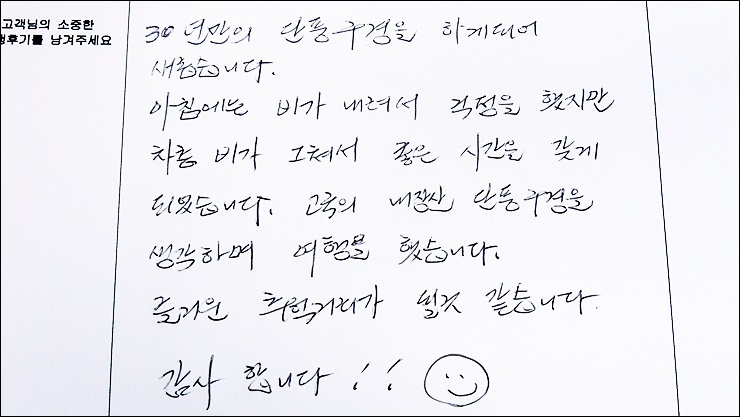 고객님의 소중한
행후기를 남겨주세요
30년만의 단풍구경을 하게되어
새롭습니다.
아침에는 비가 내려서 걱정을 했지만
차츰 비가 그쳐서 좋은 시간을 갖게
되었습니다. 고국의 내장산 단풍구경을
생각하며 여행을 했습니다.
즐거운 추억거리가 될것 같습니다.
감사 합니다 !!